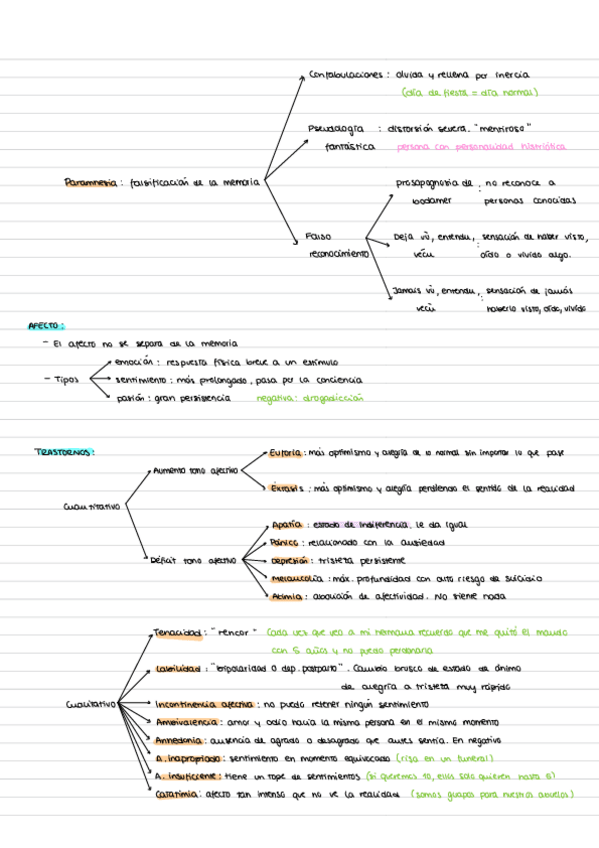 Confabulaciones : olvida y rellena por inercia
(día de fiesta = día normal)
Pseudología : distorsión severa. "mentiroso"
fantástica persona con personalidad histriónica
Paramnesia : falsificación de la memoria
prosopagnosia de : no reconoce a
bodamer personas conocidas
Falso
reconocimiento
Deja vù, entendu, : sensación de haber visto,
vécu oído o vivido algo.
Jamais vù, entendu, : sensación de jamás
vécu haberlo visto, oído, vivido
AFECTO :
- El afecto no se separa de la memoria
emoción : respuesta física breve a un estímulo
- Tipos sentimiento : más prolongado, pasa por la conciencia
pasión : gran persistencia negativa : drogadicción
TRASTORNOS :
Euforia : más optimismo y alegría de lo normal sin importar lo que pase
Aumento tono afectivo
Éxtasis : más optimismo y alegría perdiendo el sentido de la realidad
Cuantitativo
Apatía : estado de indiferencia. le da igual
Pánico : relacionado con la ansiedad
Déficit tono afectivo Depresión : tristeza persistente
Melancolía : máx. profundidad con alto riesgo de suicidio
Atimia : abolición de afectividad. No siente nada
Tenacidad : "rencor" Cada vez que veo a mi hermana recuerdo que me quitó el mando
con 5 años y no puedo perdonarla
Labilidad : "bipolaridad o dep. postparto". Cambio brusco de estado de ánimo
de alegría a tristeza muy rápido
Cualitativo Incontinencia afectiva : no puedo retener ningún sentimiento
Ambivalencia : amor y odio hacia la misma persona en el mismo momento
Anhedonia : ausencia de agrado o desagrado que antes sentía. En negativo
A. inapropiado : sentimiento en momento equivocado (risa en un funeral)
A. insuficiente : tiene un tope de sentimientos (si queremos 10, ellos solo quieren hasta 6)
Catatimia : afecto tan intenso que no ve la realidad (somos guapos para nuestros abuelos)